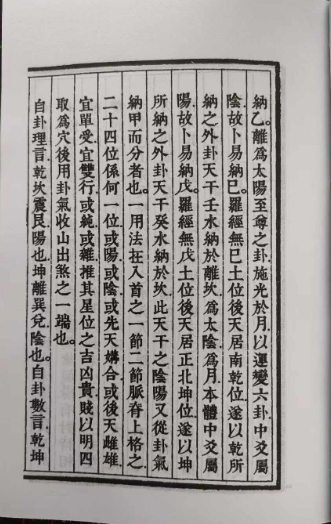 納乙。離爲太陽至尊之卦施光於月以運變六卦中爻屬
陰故卜易納巳。羅經無巳土位後天居南乾位遂以乾所
納之外卦天干壬水納於離坎爲太陰爲月本體中爻屬
陽故卜易納戊。羅經無戊土位後天居正北坤位遂以坤
所納之外卦天干癸水納於坎此天干之陰陽又從卦氣
納甲而分者也。一用法在入首之一節二節脈脊上格之
二十四位係何一位或陽或陰或先天媾合或後天雌雄
宜單受宜雙行或純或雜推其星位之吉凶貴賤以明四
取爲穴後用卦氣收山出煞之一端也。
自卦理言乾坎震艮陽也坤離巽兌陰也。自卦數言乾坤